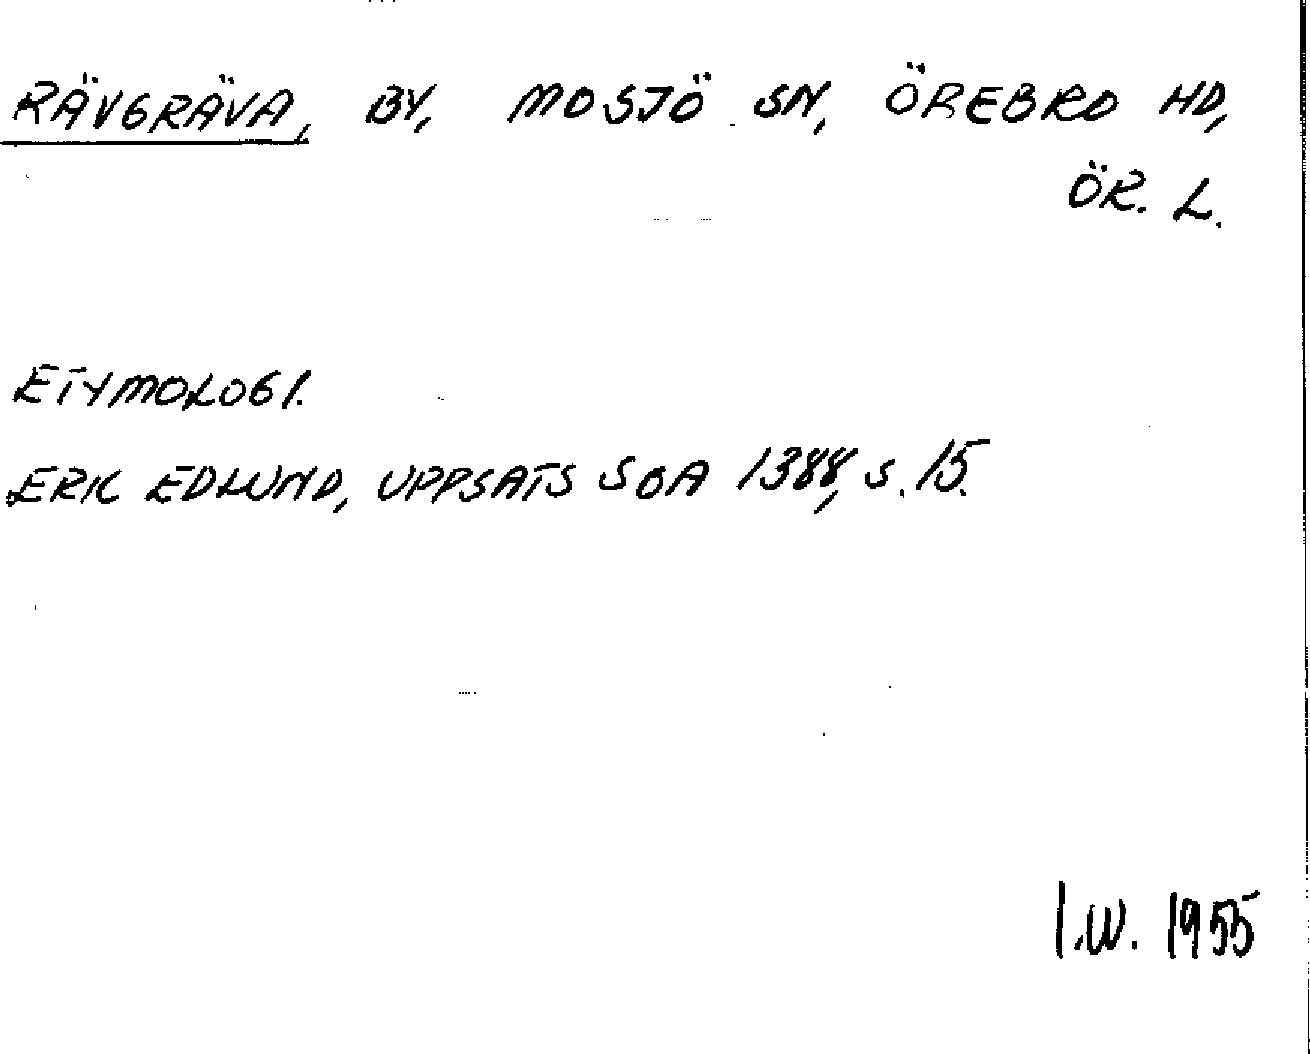 RÄVGRÄVA, BY, MOSJÖ SN, ÖREBRO HD,
ÖR. L.
ETYMOLOGI.
ERIC EDLUND, UPPSATS SOA 1388, S. 15.
I.W. 1955